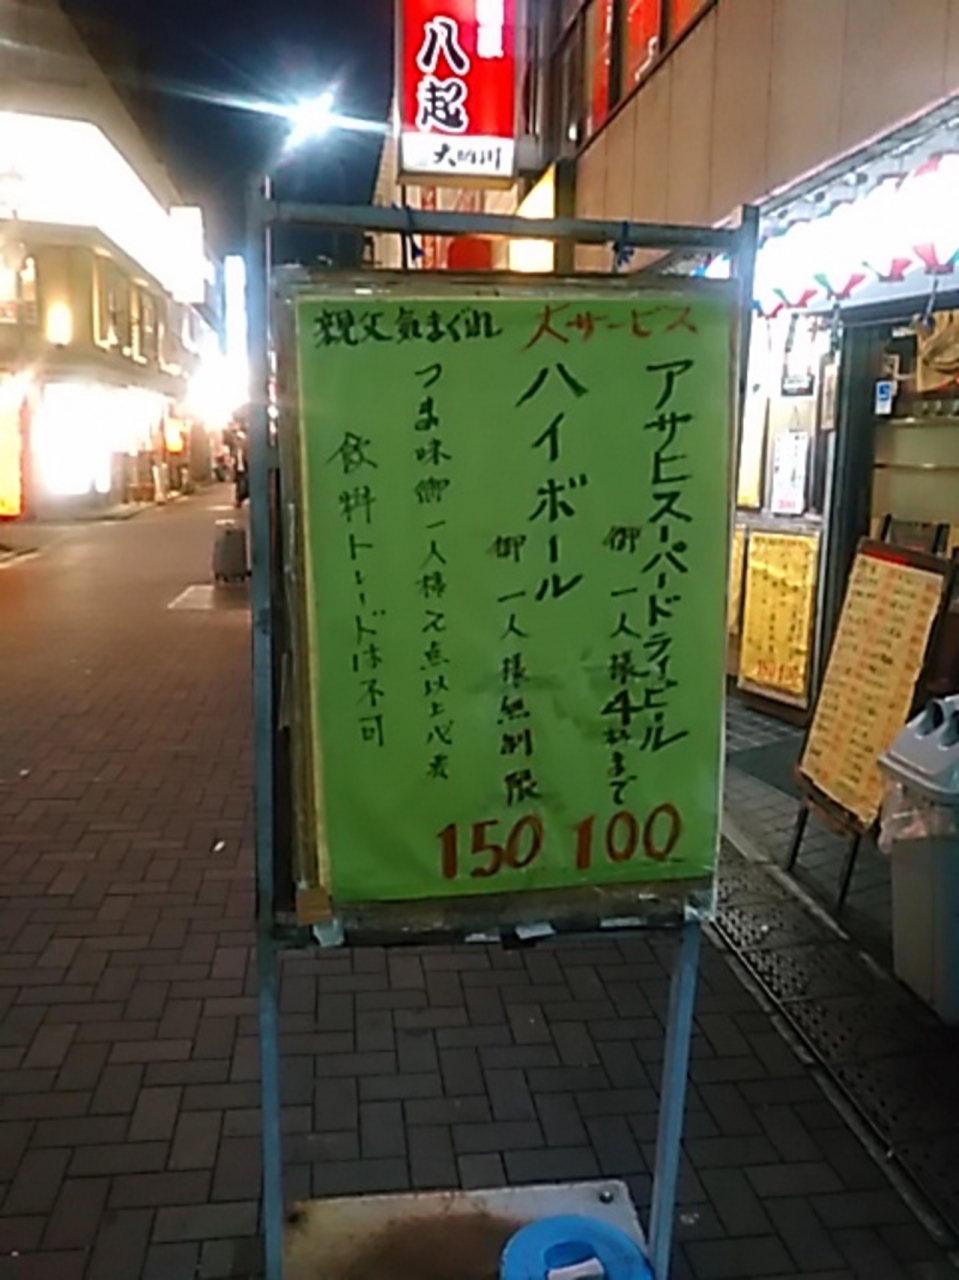 八起
大納川
親父気まぐれ 大サービス
アサヒスーパードライビール
御一人様4杯まで
100
ハイボール
御一人様無制限
150
つま味御一人様2点以上必要
飲料トレードは不可